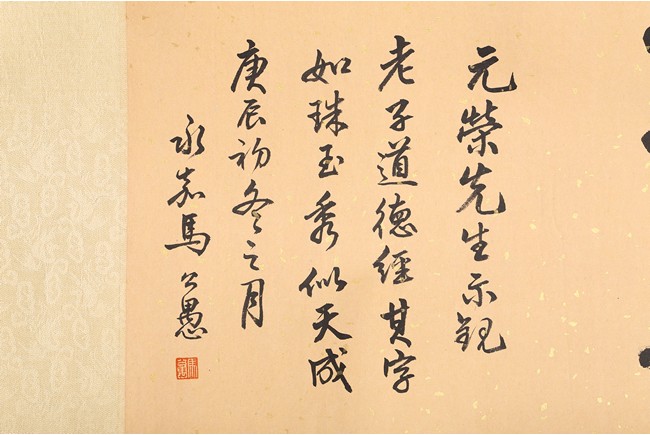 元榮先生示觀
老子道德經其字
如珠玉秀似天成
庚辰初冬之月
永嘉馬公愚